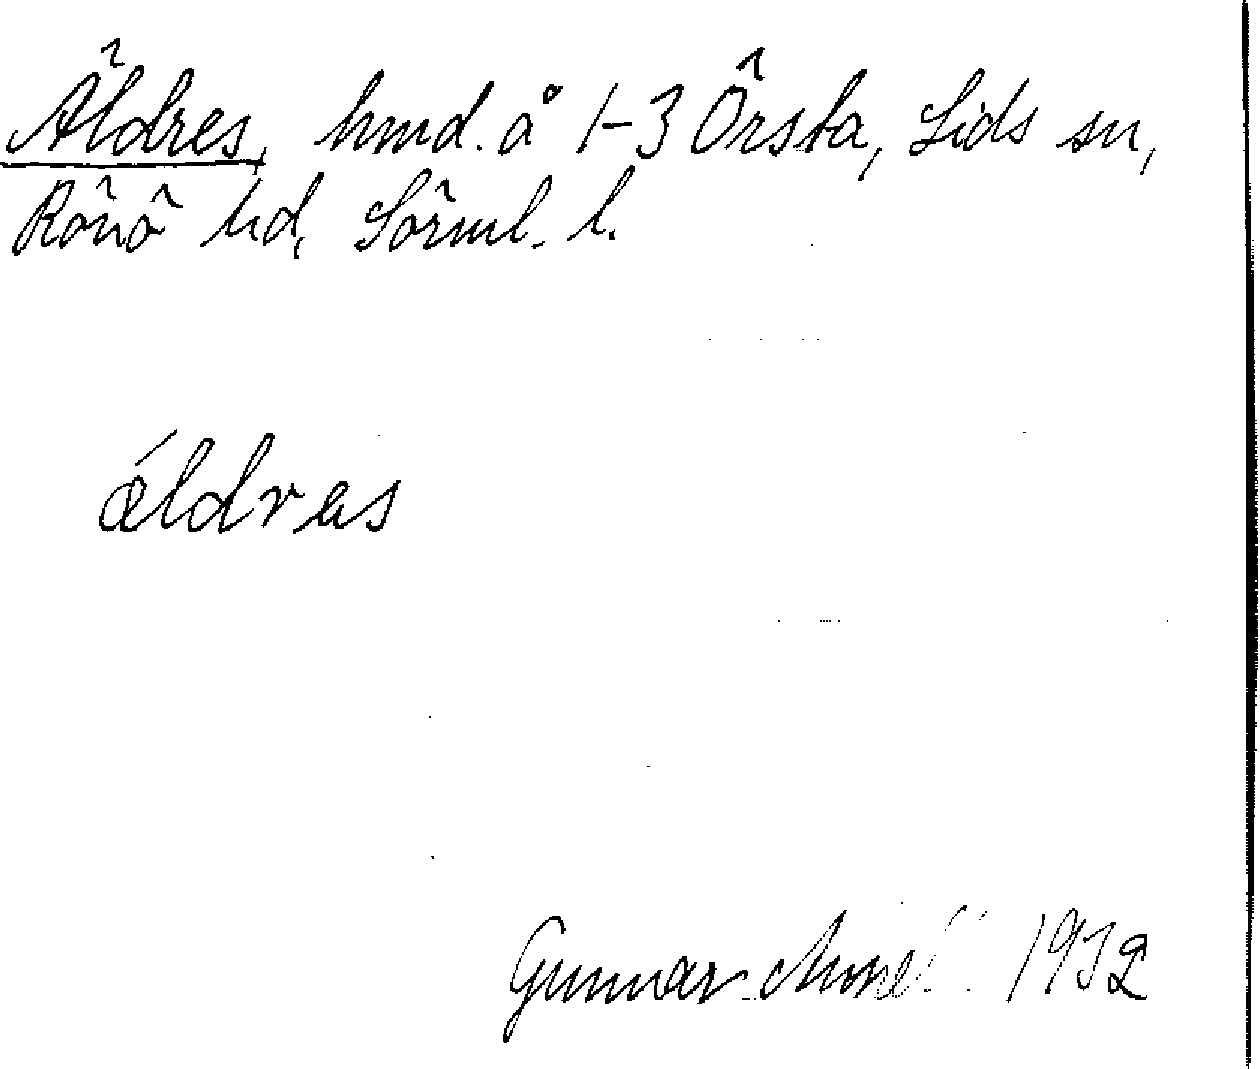 Äldres, hmd. å 1-3 Örsta, Lids sn,
Rönö hd, Sörml. l.
ǽldrɐs
Gunnar 1932